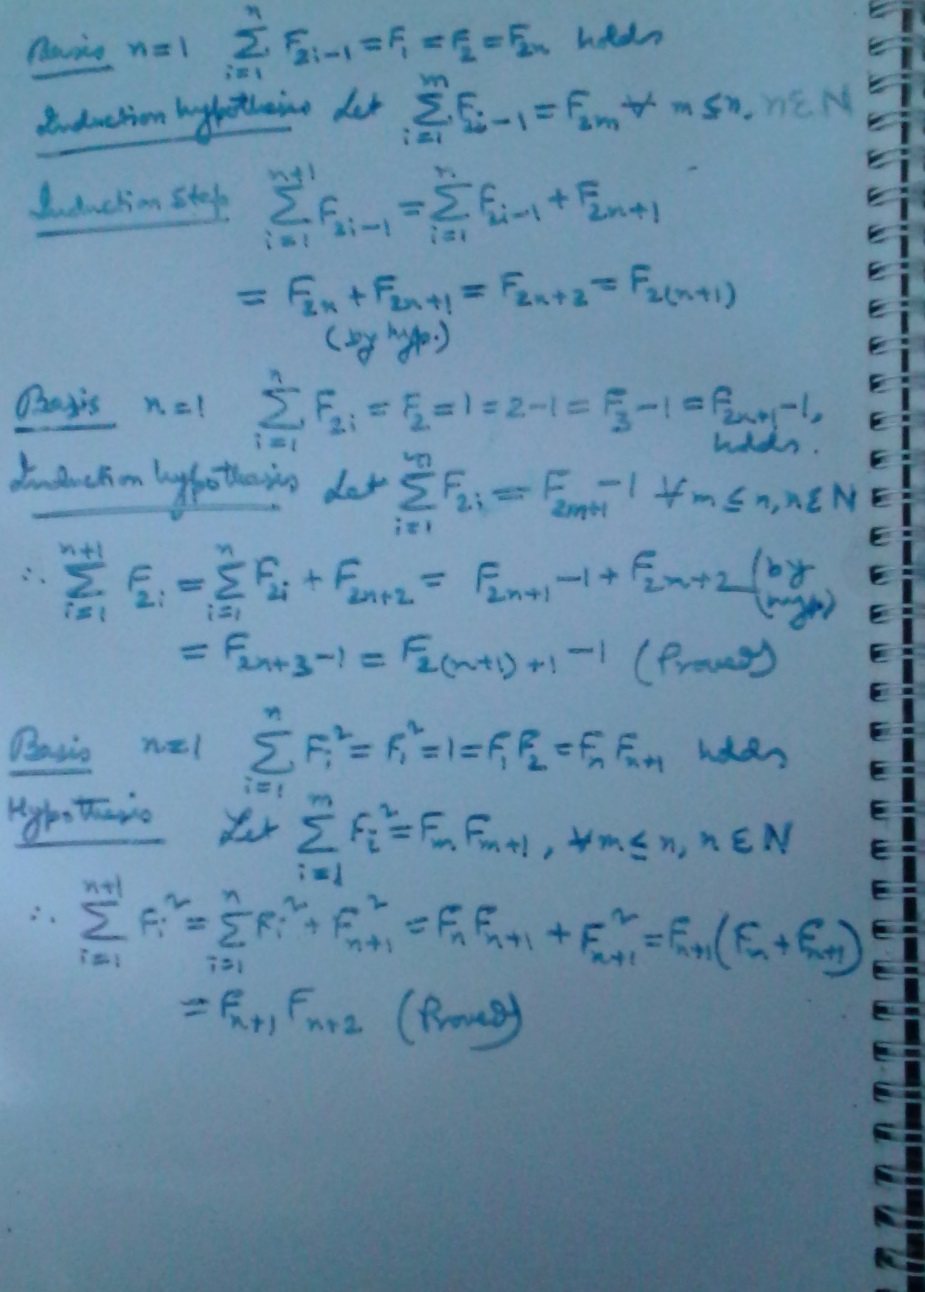 Basis n=1 $\sum_{i=1}^{n} F_{2i-1} = F_1 = F_2 = F_{2n}$ holds
Induction hypothesis Let $\sum_{i=1}^{m} F_{2i-1} = F_{2m} \forall m \leq n, n \in N$
Induction Step $\sum_{i=1}^{n+1} F_{2i-1} = \sum_{i=1}^{n} F_{2i-1} + F_{2n+1}$
$= F_{2n} + F_{2n+1} = F_{2n+2} = F_{2(n+1)}$
(by hyp.)
Basis n=1 $\sum_{i=1}^{n} F_{2i} = F_2 = 1 = 2-1 = F_3 - 1 = F_{2n+1} - 1$,
holds.
Induction hypothesis Let $\sum_{i=1}^{m} F_{2i} = F_{2m+1} - 1 \forall m \leq n, n \in N$
$\therefore \sum_{i=1}^{n+1} F_{2i} = \sum_{i=1}^{n} F_{2i} + F_{2n+2} = F_{2n+1} - 1 + F_{2n+2}$ (by hyp)
$= F_{2n+3} - 1 = F_{2(n+1)+1} - 1$ (Proved)
Basis n=1 $\sum_{i=1}^{n} F_i^2 = F_1^2 = 1 = F_1 F_2 = F_n F_{n+1}$ holds
Hypothesis Let $\sum_{i=1}^{m} F_i^2 = F_m F_{m+1}, \forall m \leq n, n \in N$
$\therefore \sum_{i=1}^{n+1} F_i^2 = \sum_{i=1}^{n} F_i^2 + F_{n+1}^2 = F_n F_{n+1} + F_{n+1}^2 = F_{n+1}(F_n + F_{n+1})$
$= F_{n+1} F_{n+2}$ (Proved)